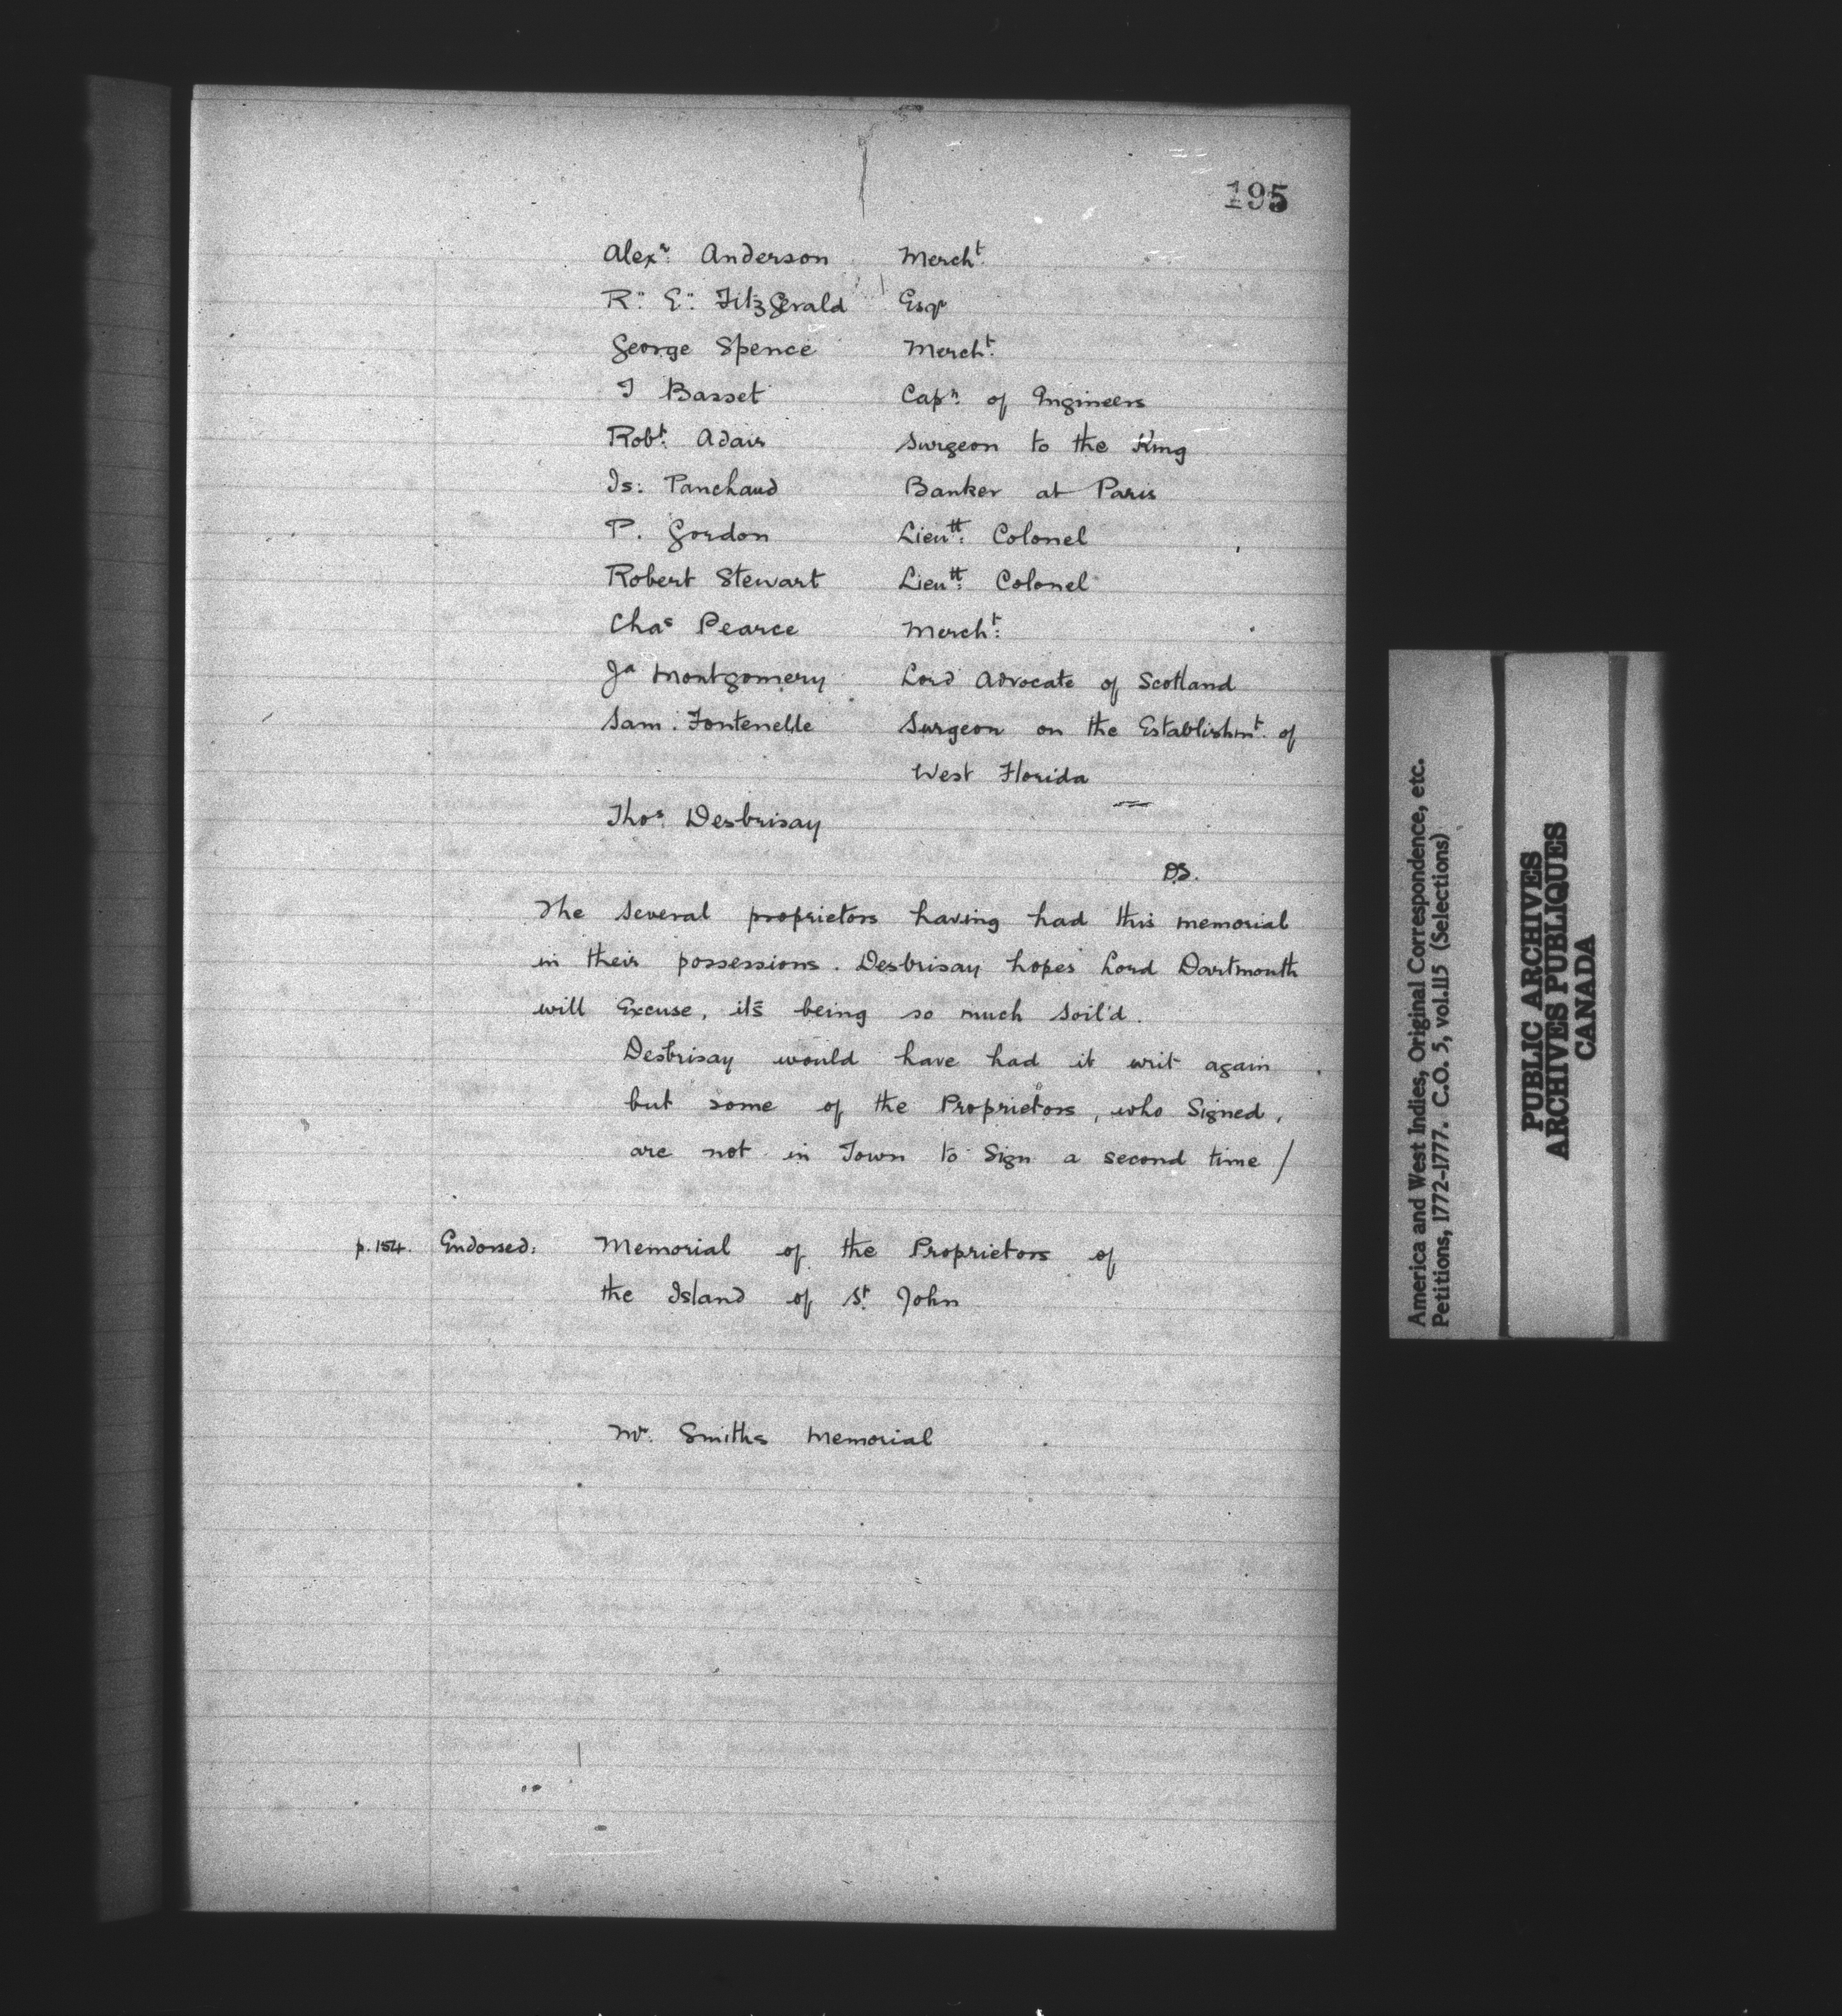 195
Alexr. Anderson Mercht.
R: E: FitzGerald Esqr
George Spence Mercht.
I Basset Capn. of Engineers
Robt. Adair Surgeon to the King
Is: Panchaud Banker at Paris
P. Gordon Lieutt. Colonel
Robert Stewart Lieutt. Colonel
Chas Pearce Mercht:
Ja Montgomery Lord Advocate of Scotland
Sam. Fontenelle Surgeon on the Establishmt. of
West Florida
Thos. Desbrisay
The several proprietors having had this memorial
in their possessions. Desbrisay hopes Lord Dartmouth
will Excuse, it's being so much Soil'd.
Desbrisay would have had it writ again
but some of the Proprietors, who Signed,
are not in Town to Sign a second time /
p.154. Endorsed: Memorial of the Proprietors of
the Island of St. John
Mr. Smiths Memorial
America and West Indies, Original Correspondence, etc.
Petitions, 1772-1777. C.O. 5, vol.115 (Selections)
PUBLIC ARCHIVES
ARCHIVES PUBLIQUES
CANADA